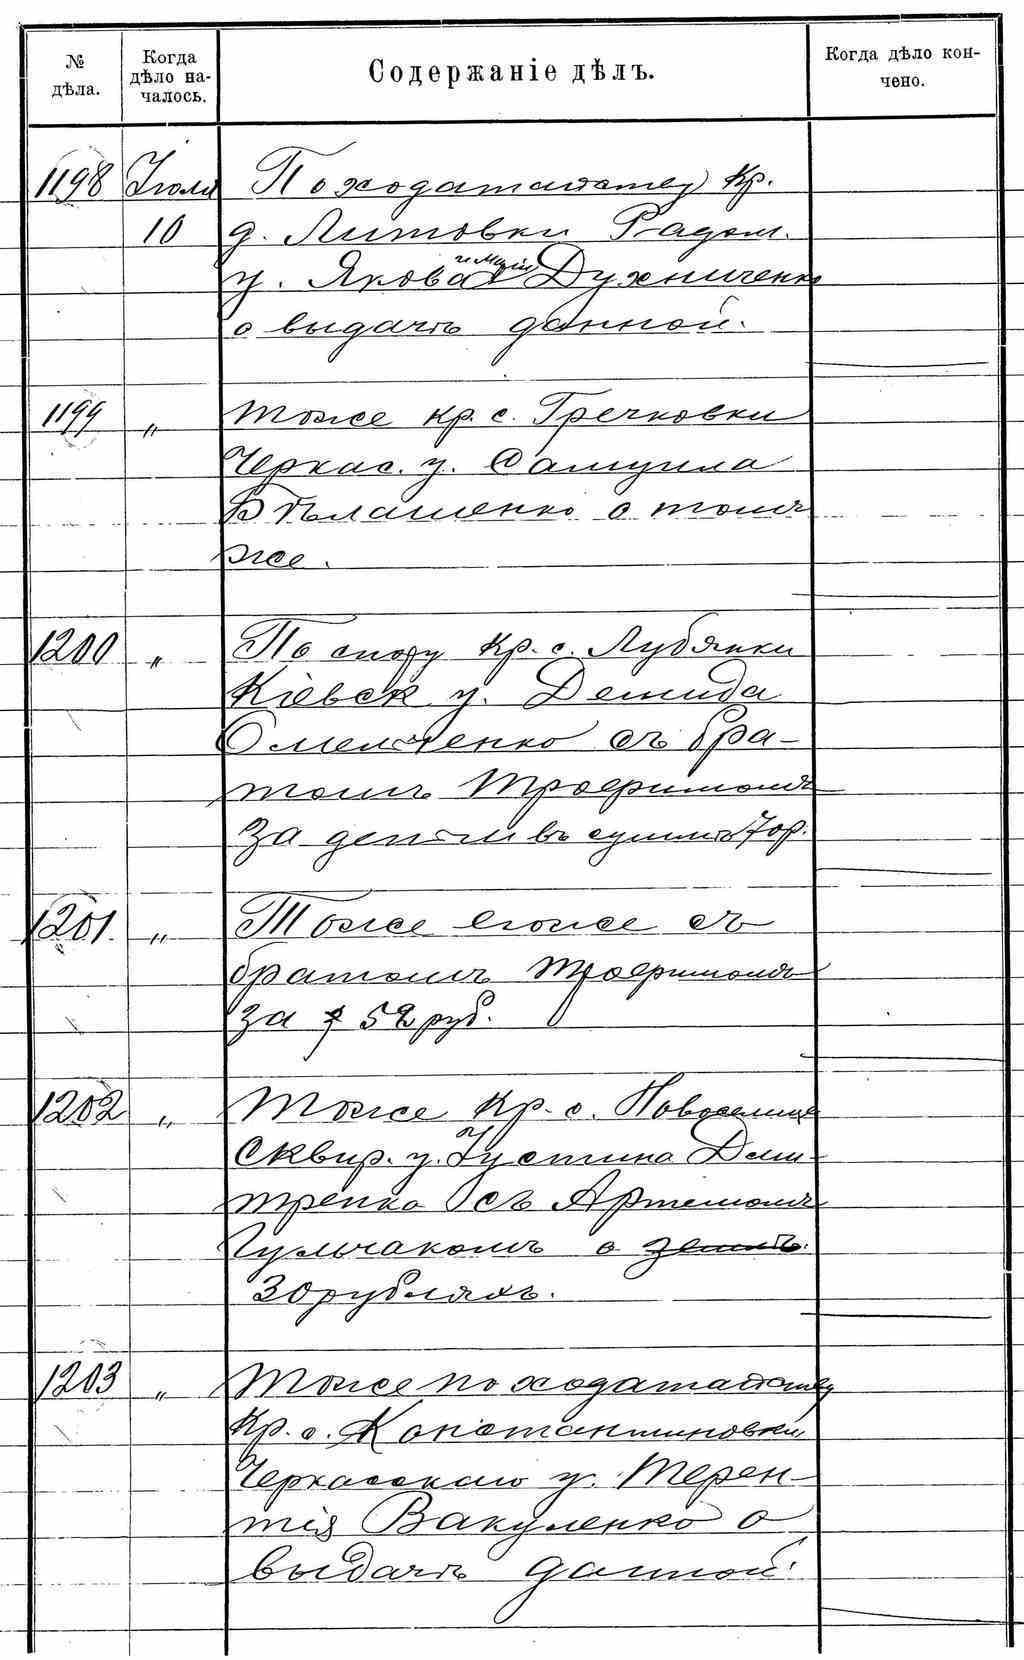 № дѣла.
Когда дѣло на-
чалось.
Содержаніе дѣлъ.
Когда дѣло кон-
чено.
1198 Іюля По ходатайству кр.
10 д. Литовки Радом.
у. Якова Духниченко
о выдачѣ данной.
1199 „ тоже кр. с. Гречковки
Черкас. у. Самуила
Бѣлашенко о томъ
же.
1200 „ По спору кр. с. Лубянки
Кіевск у. Демида
Омельченко съ бра-
томъ Трофимомъ
за деньги въ суммѣ 70р.
1201. „ Тоже егоже съ
братомъ Трофимомъ
за 52 руб.
1202 „ Тоже кр. с. Новоселицы
Сквир. у. Іустина Дми-
тренко съ Артемомъ
Гульчакомъ о землѣ.
30 рубляхъ.
1203 „ Тоже по ходатайству
кр. с. Константиновки
Черкасскаго у. Терен-
тія Вакуленко о
выдачѣ данной.